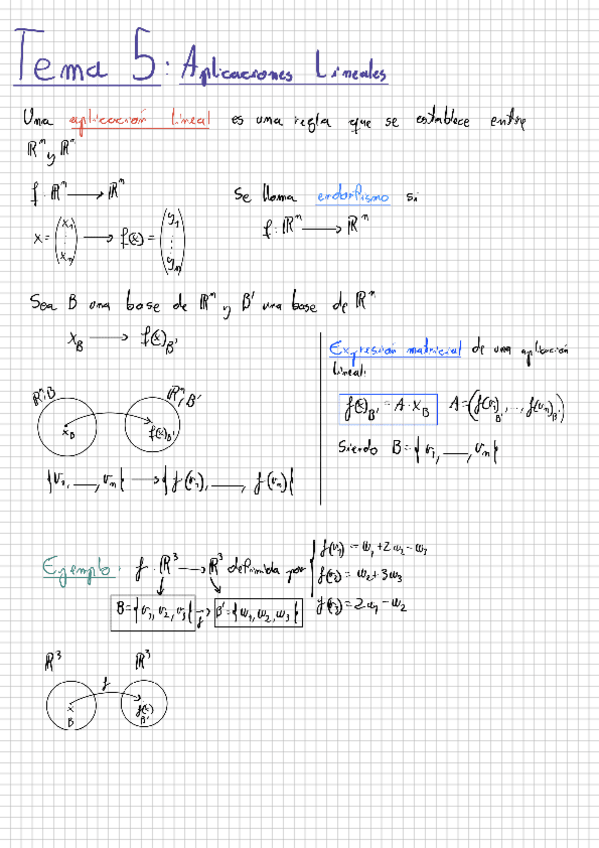 Tema 5: Aplicaciones Lineales
Una aplicación lineal es una regla que se establece entre
ℝⁿ y ℝᵐ
f: ℝⁿ → ℝᵐ
x = (x₁ ⋮ xₙ) → f(x) = (y₁ ⋮ yₘ)
Se llama endorfismo si
f: ℝⁿ → ℝⁿ
Sea B una base de ℝⁿ y B' una base de ℝᵐ
x_B → f(x)_B'
ℝⁿ, B ℝᵐ, B'
x_B f(x)_B'
{v₁, __, vₙ} → {f(v₁), __, f(vₙ)}
Expresión matricial de una aplicación
lineal.
f(x)_B' = A · x_B A = (f(v₁)_B', ..., f(vₙ)_B')
Siendo B = {v₁, __, vₙ}
Ejemplo. f: ℝ³ → ℝ³ definida por
f(v₁) = w₁ + 2w₂ - w₃
f(v₂) = w₂ + 3w₃
f(v₃) = 2w₁ - w₂
B = {v₁, v₂, v₃} → f B' = {w₁, w₂, w₃}
ℝ³ ℝ³
f
x f(x)
B B'